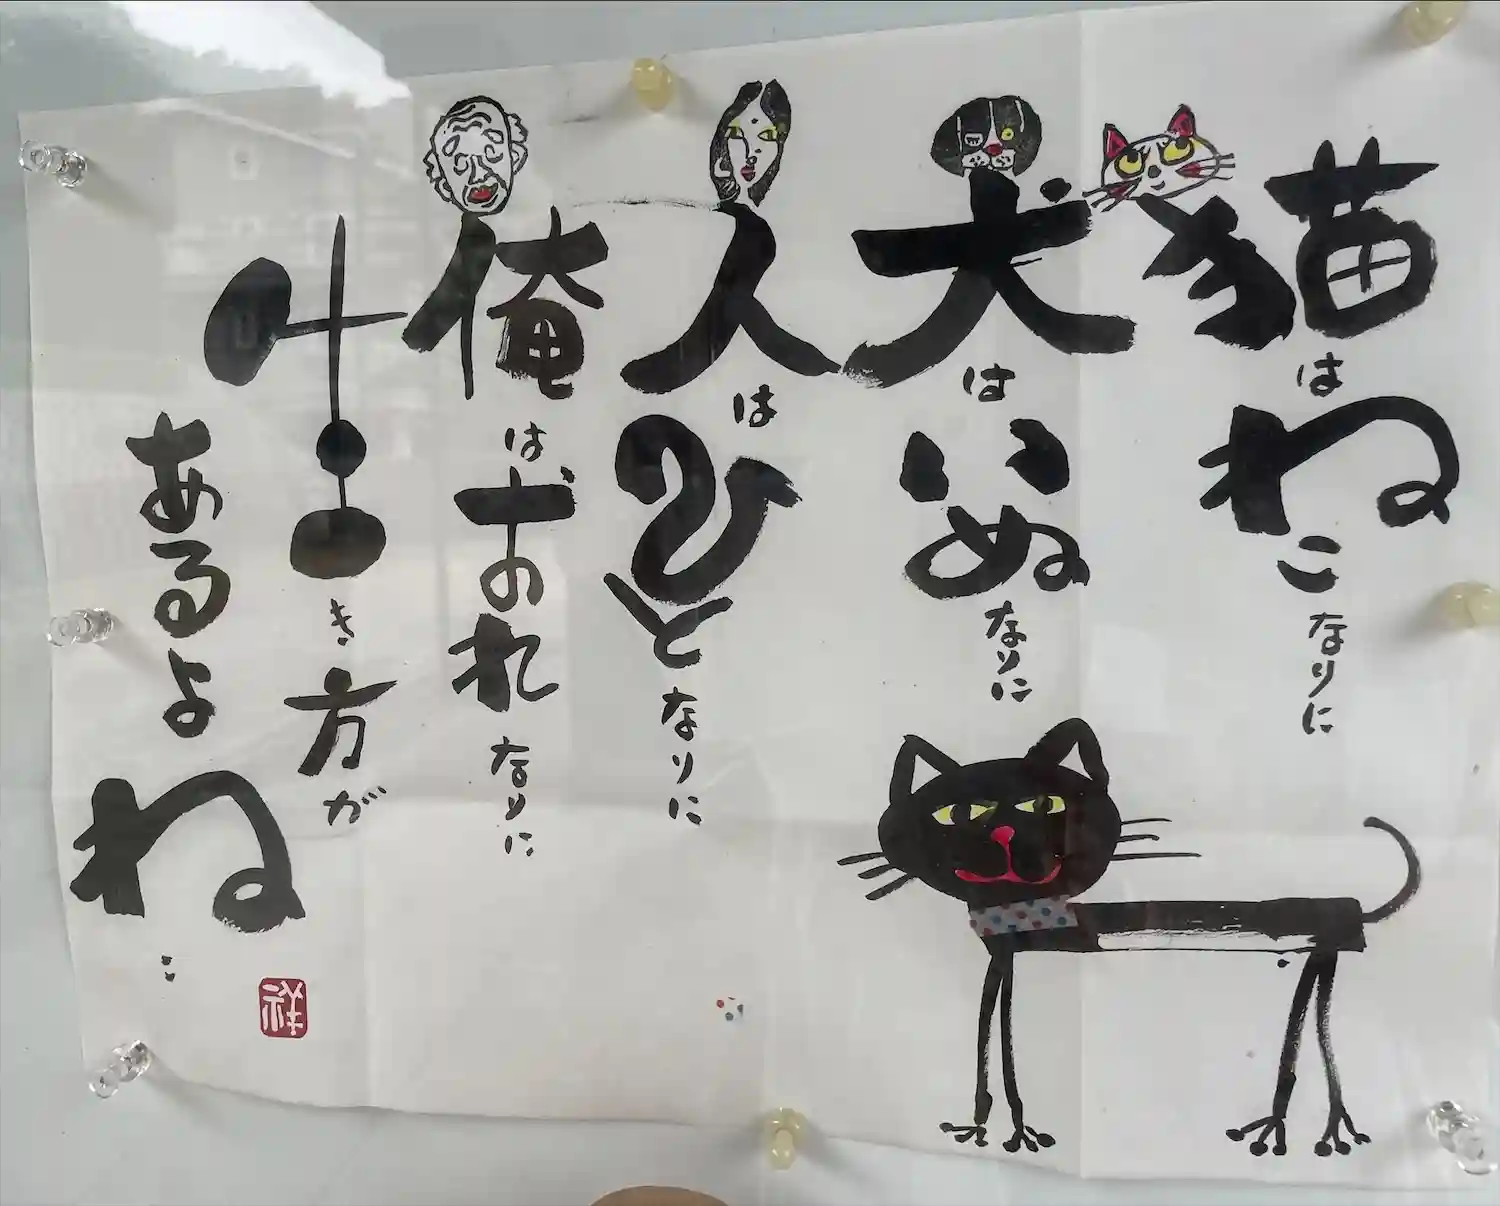 猫はねこなりに
犬はいぬなりに
人はひとなりに
俺はおれなりに
生き方が
あるよね
祥